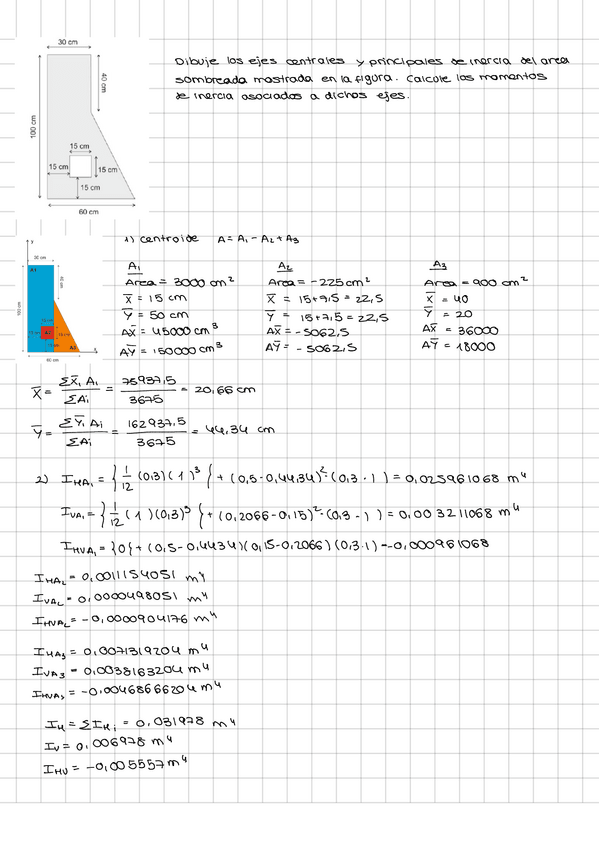 30 cm
40 cm
100 cm
15 cm
15 cm
15 cm
15 cm
60 cm
Dibuje los ejes centrales y principales de inercia del area
sombreada mostrada en la figura. Calcule los momentos
de inercia asociados a dichos ejes.
1) centroide A = A₁ - A₂ + A₃
y
30 cm
A1
100 cm
60 cm
A3
x
A₁
Area = 3000 cm²
X̅ = 15 cm
Y̅ = 50 cm
AX̅ = 45000 cm³
AY̅ = 150000 cm³
A₂
Area = -225 cm²
X̅ = 15+7,5 = 22,5
Y̅ = 15+7,5 = 22,5
AX̅ = -5062,5
AY̅ = -5062,5
A₃
Area = 900 cm²
X̅ = 40
Y̅ = 20
AX̅ = 36000
AY̅ = 18000
X̅ = ΣX̅ᵢAᵢ / ΣAᵢ = 75937,5 / 3675 = 20,66 cm
Y̅ = ΣY̅ᵢAᵢ / ΣAᵢ = 162937,5 / 3675 = 44,34 cm
2) I_HA₁ = {1/12 (0,3)(1)³} + (0,5-0,4434)²·(0,3·1) = 0,025961068 m⁴
I_VA₁ = {1/12 (1)(0,3)³} + (0,2066-0,15)²·(0,3·1) = 0,003211068 m⁴
I_HVA₁ = {0} + (0,5-0,4434)(0,15-0,2066)(0,3·1) = -0,000961068
I_HA₂ = 0,0011154051 m⁴
I_VA₂ = 0,0000498051 m⁴
I_HVA₂ = -0,0000904176 m⁴
I_HA₃ = 0,0071319204 m⁴
I_VA₃ = 0,0038163204 m⁴
I_HVA₃ = -0,0046866204 m⁴
I_H = ΣI_Hᵢ = 0,031978 m⁴
I_V = 0,006978 m⁴
I_HV = -0,005557 m⁴